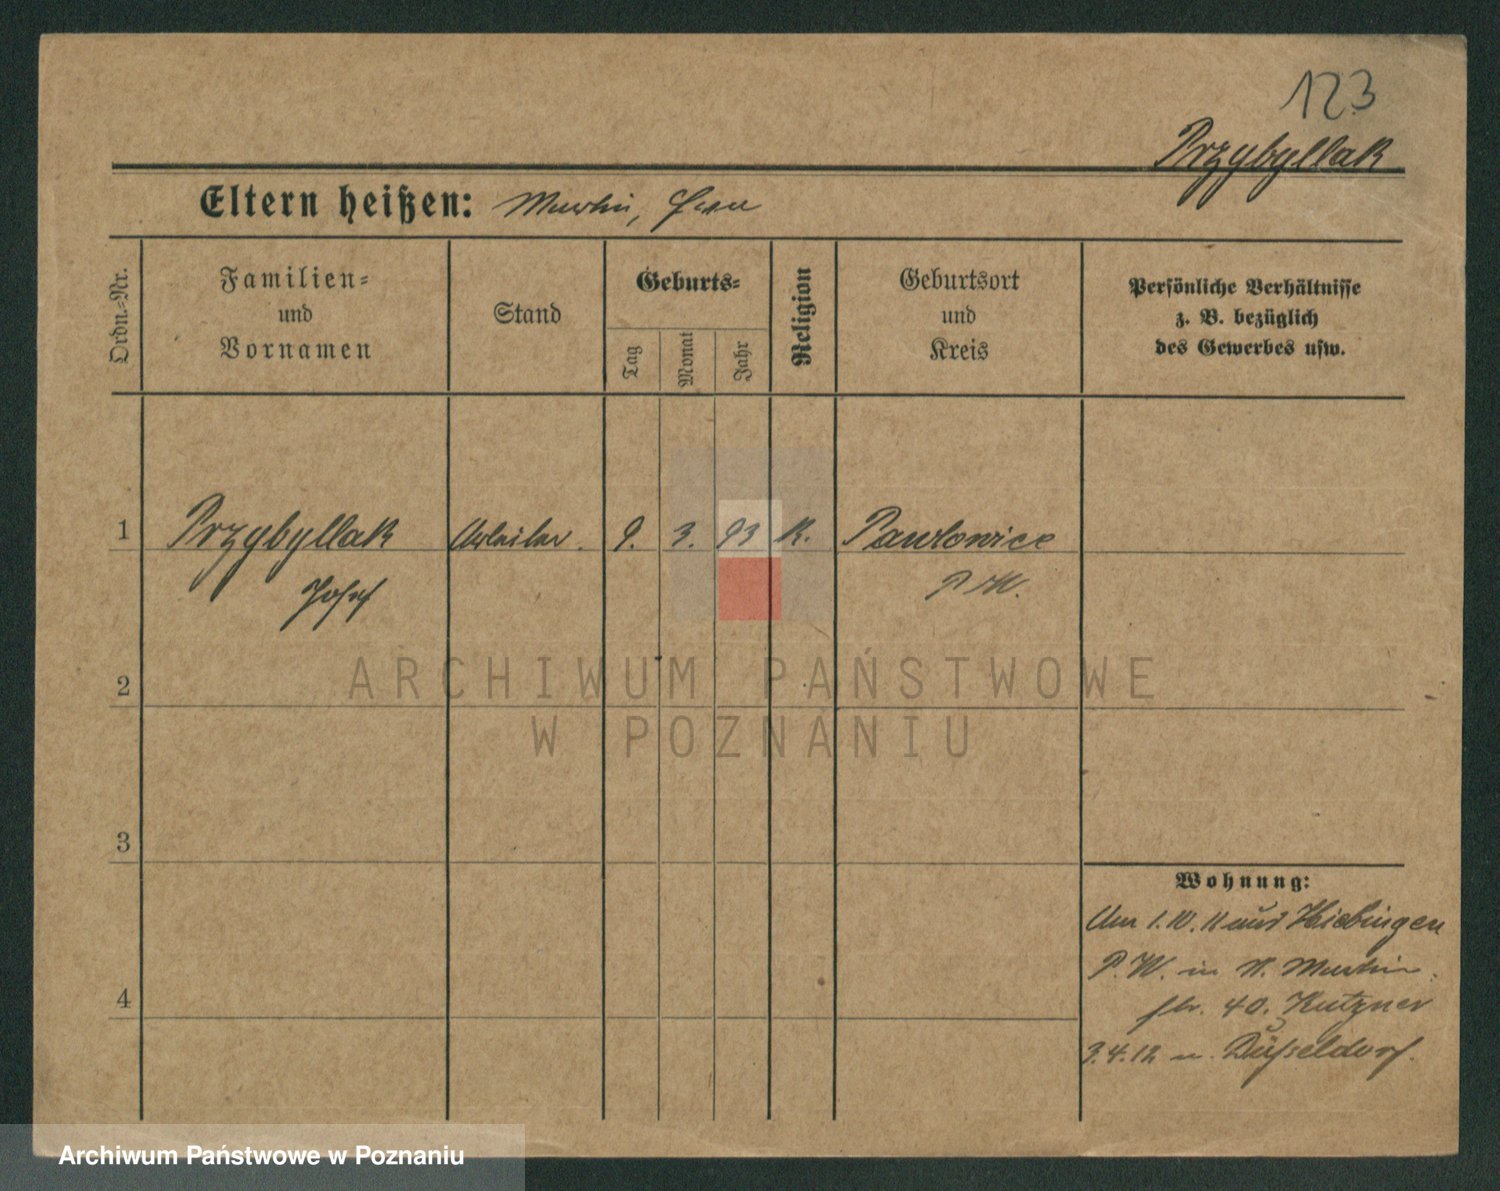 123
Przybyllak
Eltern heißen: Martin,
Ordn.-Nr.
Familien-
und
Vornamen
Stand
Geburts-
Tag
Monat
Jahr
Religion
Geburtsort
und
Kreis
Persönliche Verhältnisse
z. B. bezüglich
des Gewerbes usw.
1 Przybyllak Arbeiter. 9. 3. 93 K. Pawlowice
Josef P. W.
2
3
4
Wohnung:
Am 1.10.11 aus
P. W. in St. Martin
str. 40. Kutzner
3.4.12 n. Düsseldorf.
ARCHIWUM PAŃSTWOWE
W POZNANIU
Archiwum Państwowe w Poznaniu